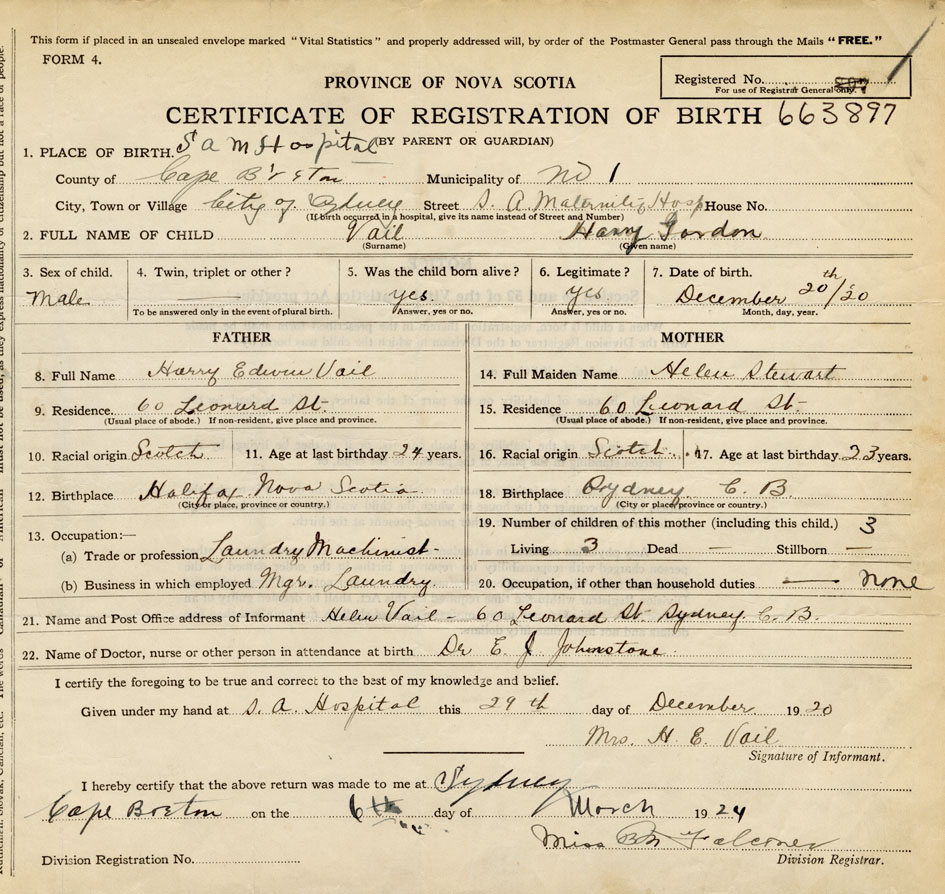 This form if placed in an unsealed envelope marked "Vital Statistics" and properly addressed will, by order of the Postmaster General pass through the Mails "FREE."
FORM 4.
Registered No.
For use of Registrar General only.
PROVINCE OF NOVA SCOTIA
CERTIFICATE OF REGISTRATION OF BIRTH 663897
(BY PARENT OR GUARDIAN)
1. PLACE OF BIRTH. S A M Hospital
County of Cape B'reton Municipality of No 1
City, Town or Village City of Sydney Street S. A. Maternity Hosp House No.
(If birth occurred in a hospital, give its name instead of Street and Number)
2. FULL NAME OF CHILD Vail Harry Gordon
(Surname) (Given name)
3. Sex of child. 4. Twin, triplet or other? 5. Was the child born alive? 6. Legitimate? 7. Date of birth.
Male — yes. yes December 20th/20
To be answered only in the event of plural birth. Answer, yes or no. Answer, yes or no. Month, day, year.
FATHER MOTHER
8. Full Name Harry Edwin Vail 14. Full Maiden Name Helen Stewart
9. Residence. 60 Leonard St. 15. Residence 60 Leonard St.
(Usual place of abode.) If non-resident, give place and province. (Usual place of abode.) If non-resident, give place and province.
10. Racial origin Scotch 11. Age at last birthday 24 years. 16. Racial origin Scotch 17. Age at last birthday 23 years.
12. Birthplace Halifax Nova Scotia 18. Birthplace Sydney C. B.
(City or place, province or country.) (City or place, province or country.)
13. Occupation:— 19. Number of children of this mother (including this child.) 3
(a) Trade or profession Laundry Machinist Living 3 Dead — Stillborn —
(b) Business in which employed Mgr. Laundry. 20. Occupation, if other than household duties — none
21. Name and Post Office address of Informant Helen Vail - 60 Leonard St Sydney C. B.
22. Name of Doctor, nurse or other person in attendance at birth Dr E. J Johnstone.
I certify the foregoing to be true and correct to the best of my knowledge and belief.
Given under my hand at S. A. Hospital this 29th day of December 1920
Mrs. H. E. Vail
Signature of Informant.
I hereby certify that the above return was made to me at Sydney
Cape Breton on the 6th day of March 1924
Miss Falconer
Division Registration No. Division Registrar.